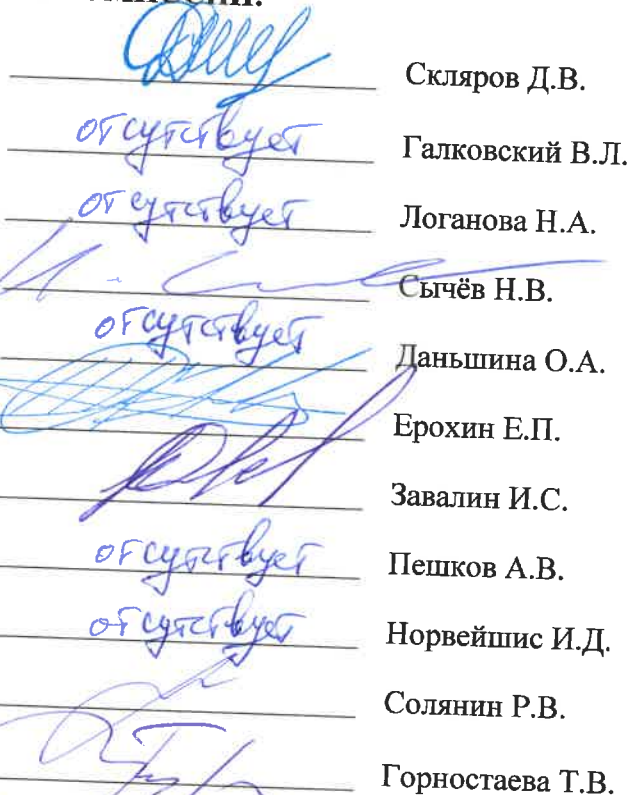 Скляров Д.В.
отсутствует Галковский В.Л.
отсутствует Логанова Н.А.
Сычёв Н.В.
отсутствует Даньшина О.А.
Ерохин Е.П.
Завалин И.С.
отсутствует Пешков А.В.
отсутствует Норвейшис И.Д.
Солянин Р.В.
Горностаева Т.В.